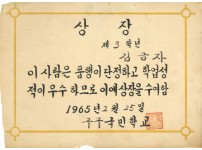 상장
제3학년
김금자
이 사람은 품행이 단정하고 학업성
적이 우수하므로 이에 상장을 수여함
1965년 2월 25일
국민학교